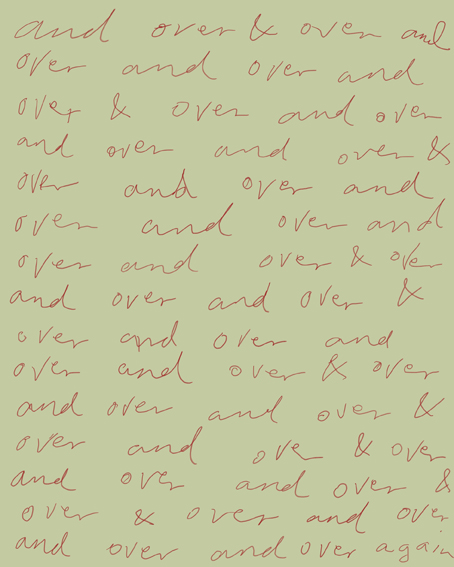 and over & over and
over and over and
over & over and over
and over and over &
over and over and
over and over and
over and over & over
and over and over &
over and over and
over and over & over
and over and over &
over and over & over
and over and over &
over & over and over
and over and over again